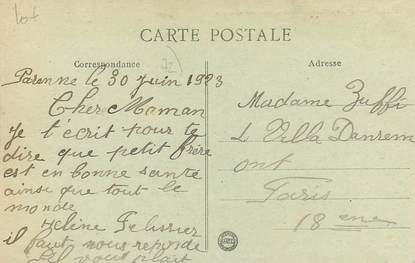 lot
CARTE POSTALE
Correspondance
Adresse
Parenne le 30 Juin 1923
Cher Maman
Je t'écrit pour te
dire que petit frère
est en bonne santé
ainsi que tout le
monde
Hélène Pelissier
il faut nous reponde
s'il vous plait
Madame Zuffi
1 Villa Danrem
ont
Paris
18 eme